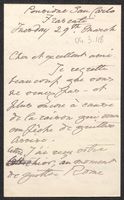 Pensione San Carlo
Tuesday 29th March
Cher et excellent ami
Je regrette
beaucoup que vous
ne veniez pas - et
plus encore à cause
de la raison qui vous
empêche de quitter
J'ai reçu votre
au moment
de quitter Rome